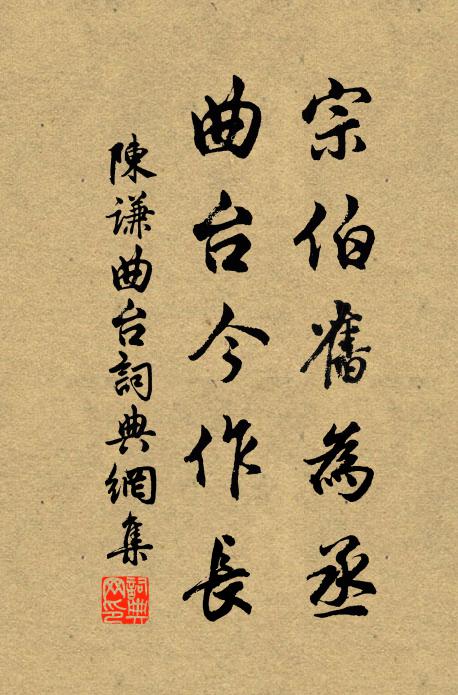 宗伯舊為丞
曲台今作長
陳謙曲台詞典網集
詞典网印